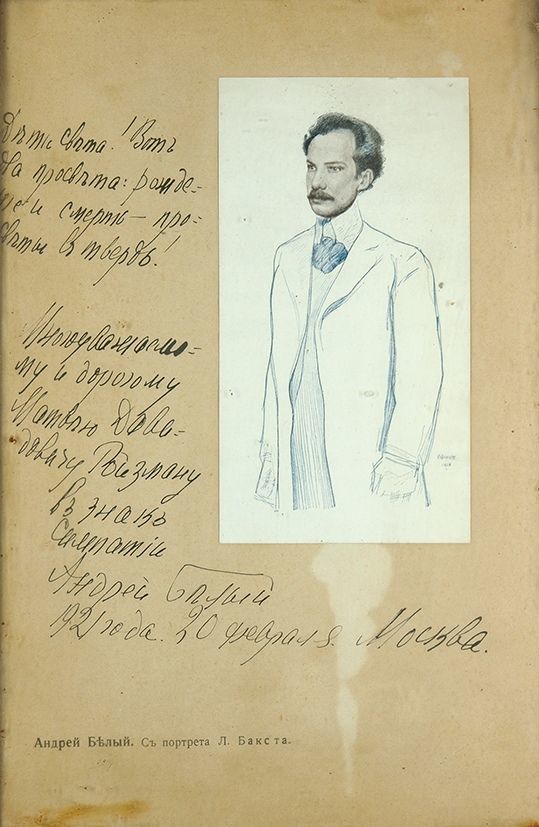 Дѣти свѣта! Вотъ
два просвѣта: рожде-
ніе и смерть — про-
свѣты въ твердь!
Многоуважаемо-
му и дорогому
Матвѣю Дави-
довичу Ройзману
въ знакъ
симпатіи
Андрей Бѣлый
1921 года. 20 февраля. Москва.
Андрей Бѣлый. Съ портрета Л. Бакста.